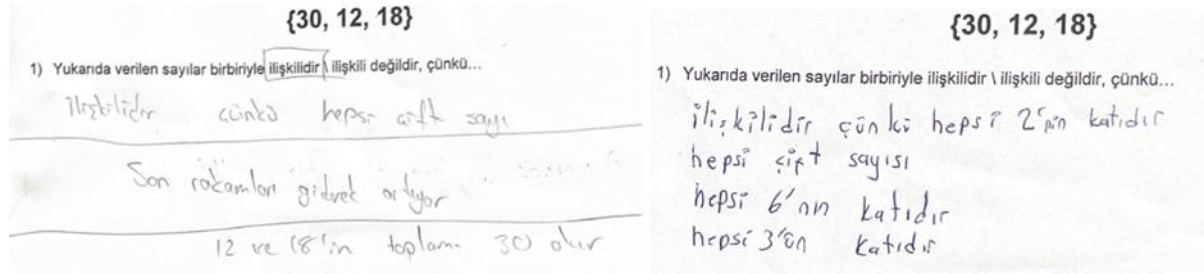 {30, 12, 18}
1) Yukarıda verilen sayılar birbiriyle ilişkilidir \ ilişkili değildir, çünkü...
ilişkilidir çünkü hepsi çift sayı
Son rakamları giderek artıyor
12 ve 18'in toplamı 30 olur
{30, 12, 18}
1) Yukarıda verilen sayılar birbiriyle ilişkilidir \ ilişkili değildir, çünkü...
ilişkilidir çünkü hepsi 2'nin katıdır
hepsi çift sayısı
hepsi 6'nın katıdır
hepsi 3'ün katıdır